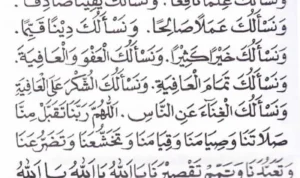 وَنَسْأَلُكَ عِلْمًا نَافِعًا. وَنَسْأَلُكَ يَقِيْنًا صَادِقًا.
وَنَسْأَلُكَ عَمَلًا صَالِحًا. وَنَسْأَلُكَ دِيْنًا قَيِّمًا.
وَنَسْأَلُكَ خَيْرًا كَثِيْرًا. وَنَسْأَلُكَ الْعَفْوَ وَالْعَافِيَةَ.
وَنَسْأَلُكَ تَمَامَ الْعَافِيَةِ. وَنَسْأَلُكَ الشُّكْرَ عَلَى الْعَافِيَةِ
وَنَسْأَلُكَ الْغِنَاءَ عَنِ النَّاسِ. اَللّٰهُمَّ رَبَّنَا تَقَبَّلْ مِنَّا
صَلَاتَنَا وَصِيَامَنَا وَقِيَامَنَا وَتَخَشُّعَنَا وَتَضَرُّعَنَا
وَتَعَبُّدَنَا وَتَمِّمْ تَقْصِيْرَنَا يَا اَللّٰهُ يَا اَللّٰهُ يَا اَللّٰهُ